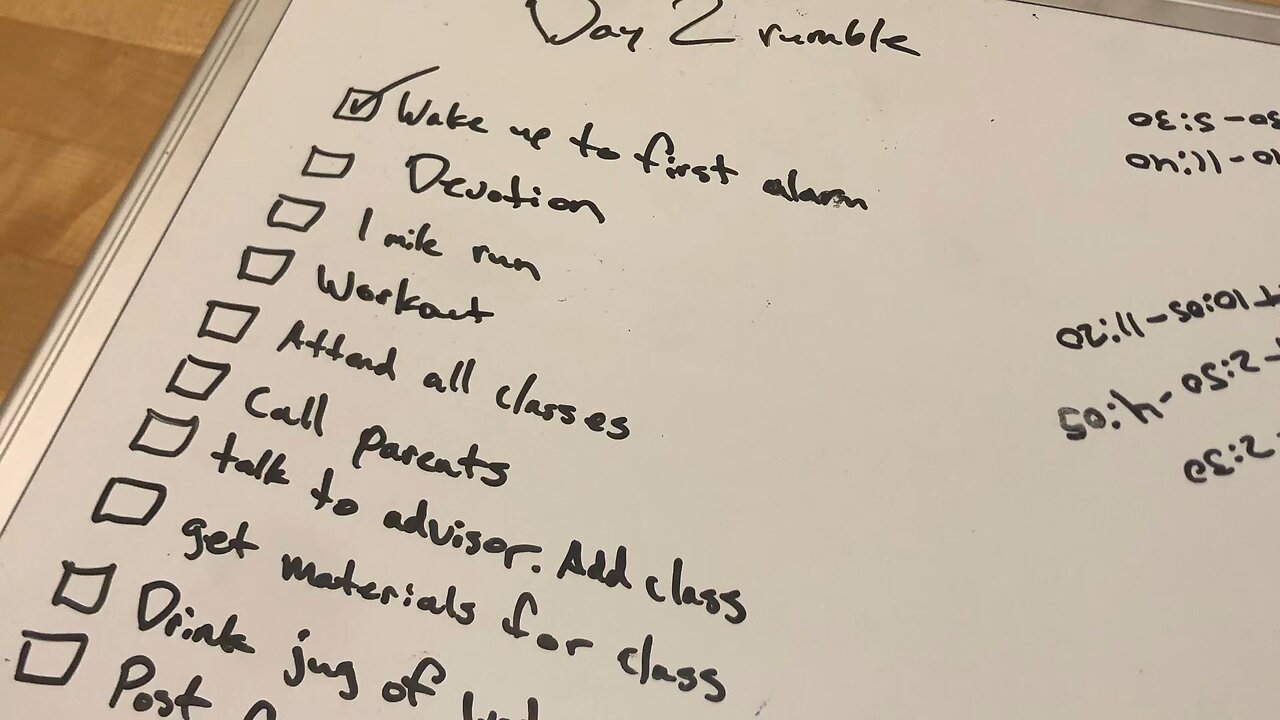 Day 2 rumble
Wake up to first alarm
Devotion
1 mile run
Workout
Attend all classes
Call parents
talk to advisor. Add class
get materials for class
Drink jug of
Post
30-5:30
10-11:40
10:05-11:20
2:50-4:05
2:30